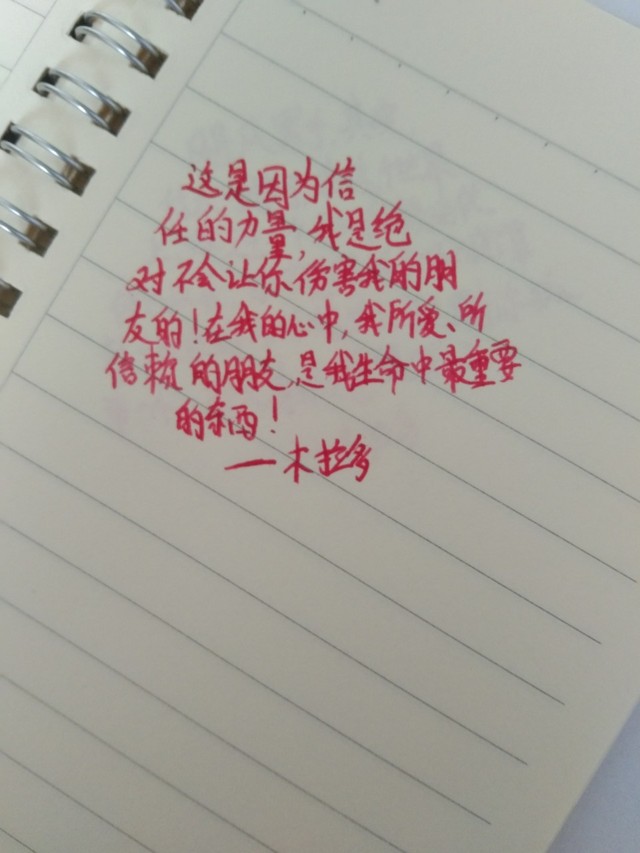 这是因为信
任的力量，我是绝
对不会让你伤害我的朋
友的！在我的心中，我所爱、所
信赖的朋友，是我生命中最重要
的东西！
——木拉多